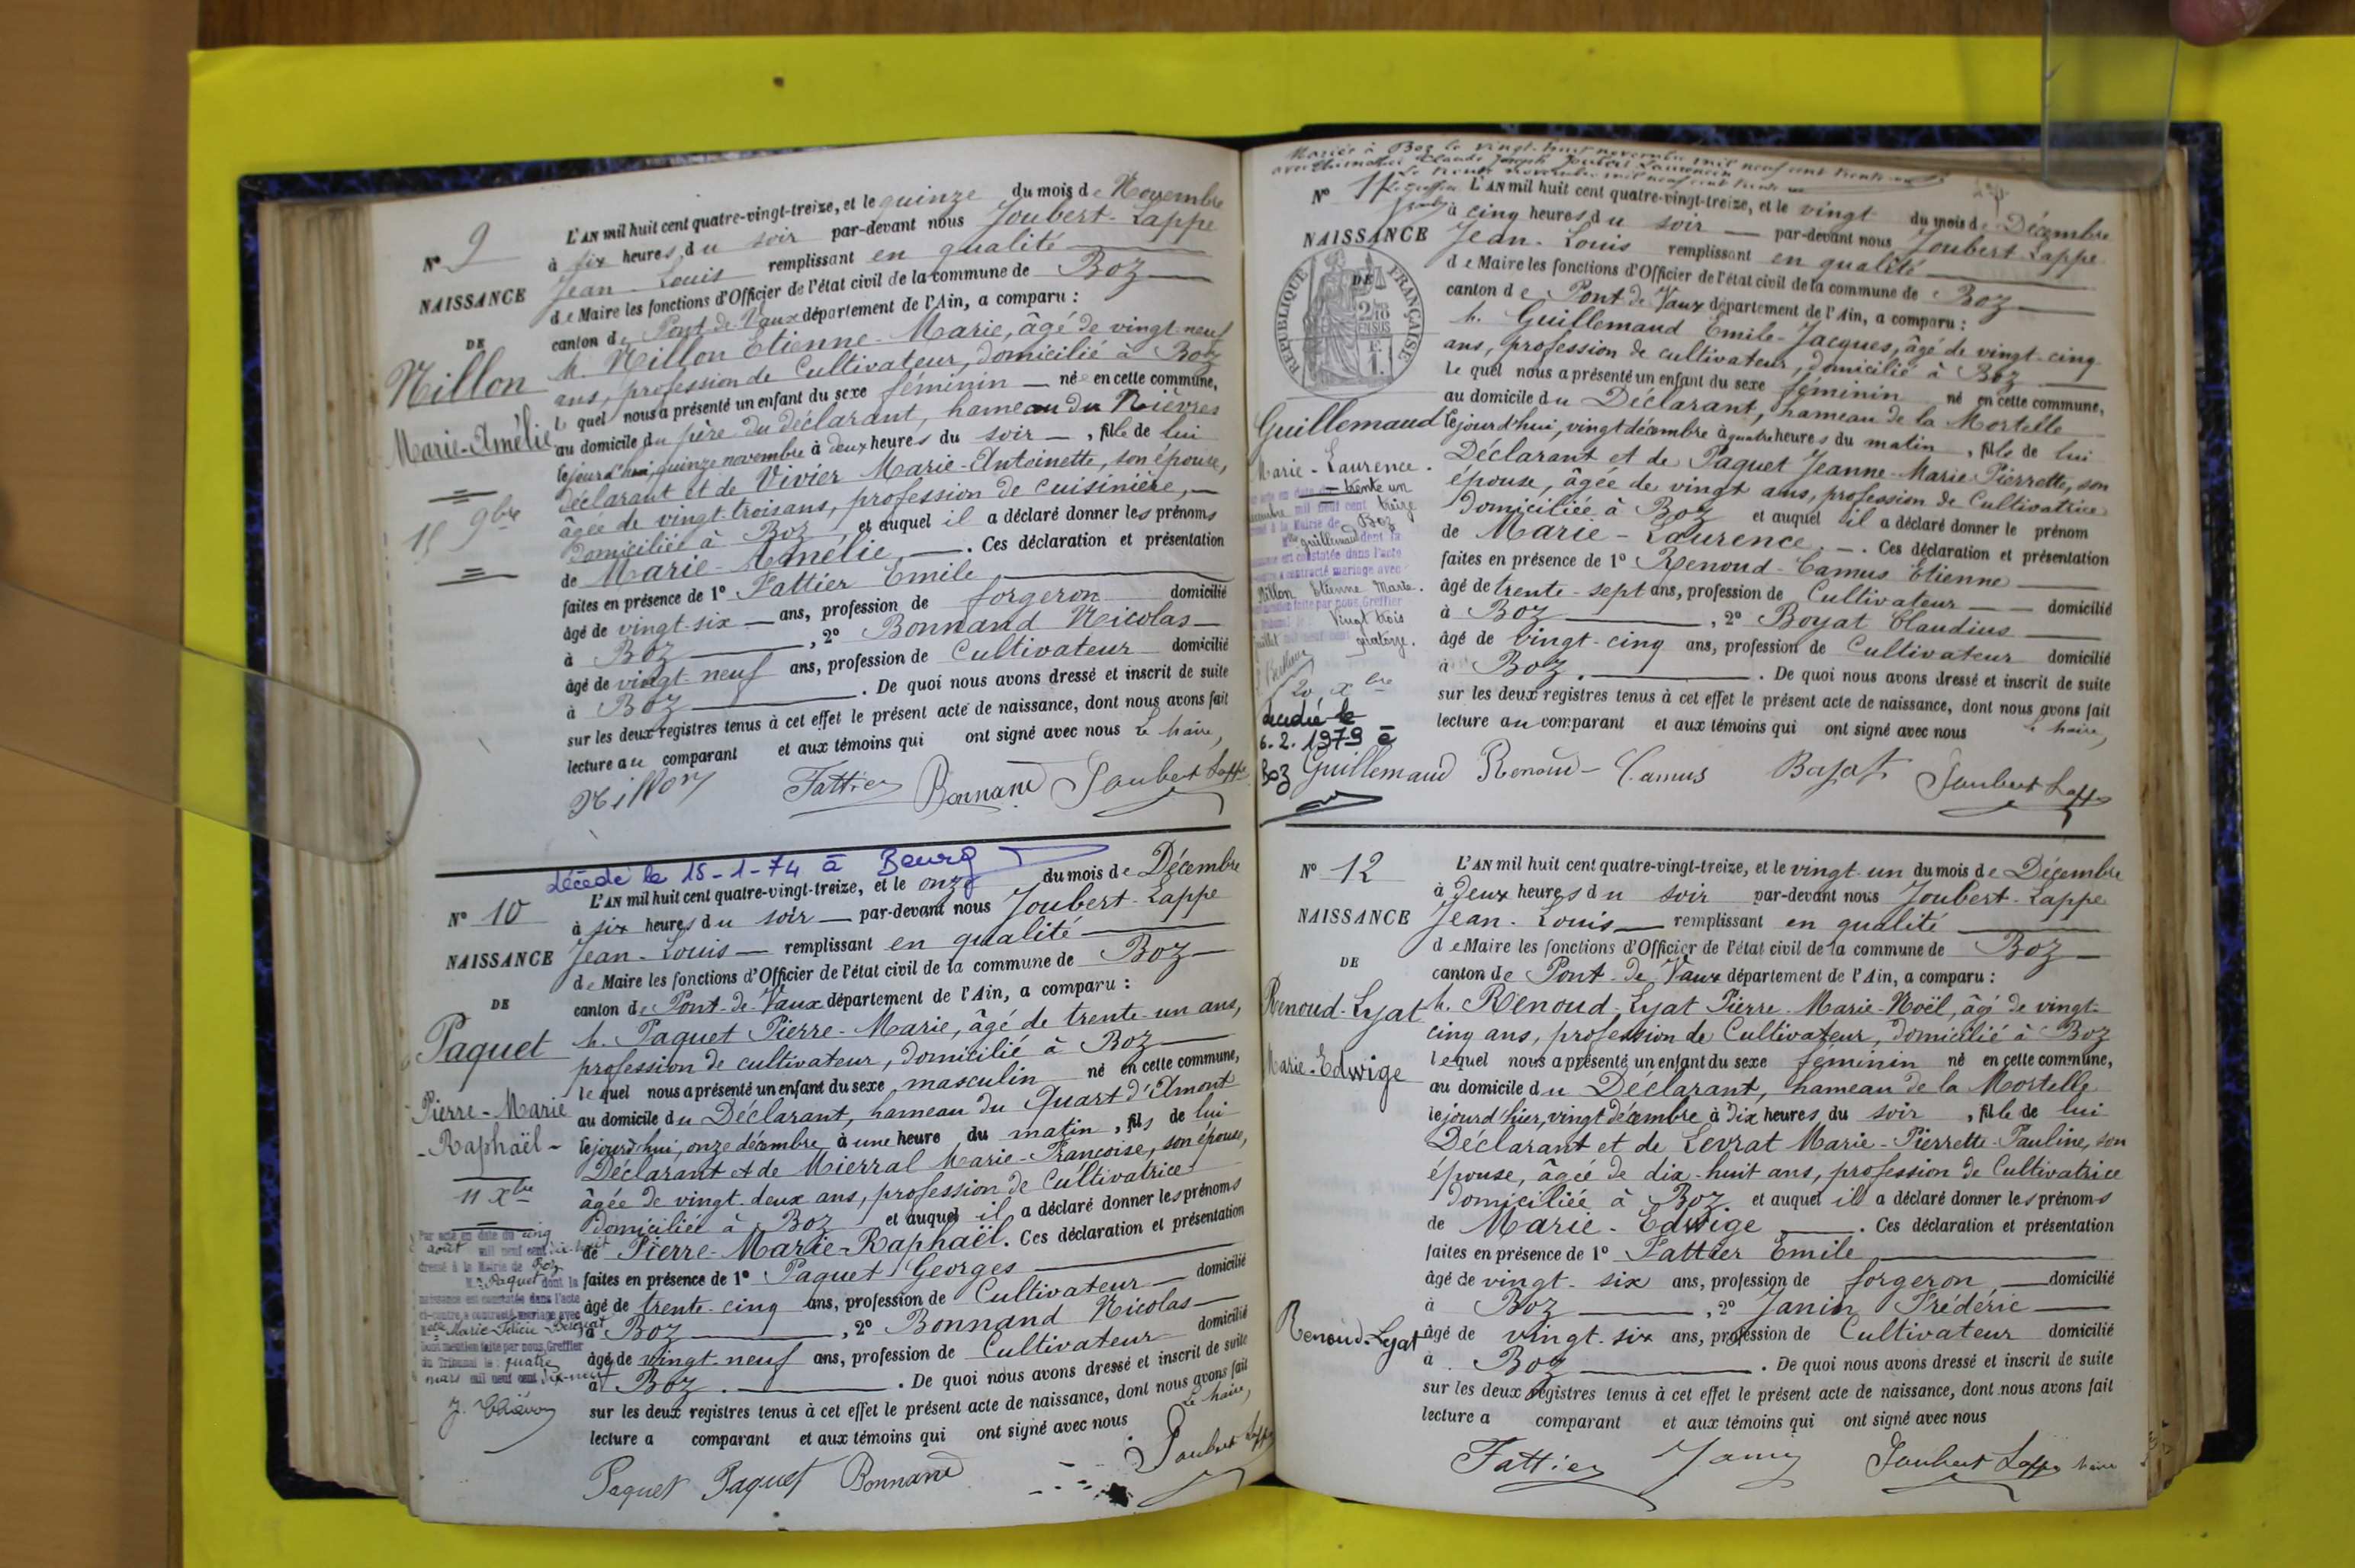 N° 9
NAISSANCE
DE
Nillon
Marie-Amélie
15 9bre
L'AN mil huit cent quatre-vingt-treize, et le quinze du mois de Novembre
à six heures du soir par-devant nous Joubert-Lappe
Jean-Louis remplissant en qualité
de Maire les fonctions d'Officier de l'état civil de la commune de Boz
canton de Pont-de-Vaux département de l'Ain, a comparu :
M. Nillon Etienne-Marie, âgé de vingt-neuf
ans, profession de Cultivateur, domicilié à Boz
Le quel nous a présenté un enfant du sexe féminin né en cette commune,
au domicile du père du déclarant, hameau du Nièvres
le jourd'hui quinze novembre à deux heures du soir, fille de lui
déclarant et de Vivier Marie-Antoinette, son épouse,
âgée de vingt-trois ans, profession de cuisinière,
domiciliée à Boz et auquel il a déclaré donner les prénoms
de Marie-Amélie. Ces déclaration et présentation
faites en présence de 1° Fattier Emile
âgé de vingt-six ans, profession de forgeron domicilié
à Boz, 2° Bonnand Nicolas
âgé de vingt-neuf ans, profession de Cultivateur domicilié
à Boz. De quoi nous avons dressé et inscrit de suite
sur les deux registres tenus à cet effet le présent acte de naissance, dont nous avons fait
lecture au comparant et aux témoins qui ont signé avec nous Le Maire,
Nillon Fattier Bonnand Joubert Lappe
décédé le 15-1-74 à Bourg
N° 10
NAISSANCE
DE
Paquet
Pierre-Marie
-Raphaël-
11 Xbre
Par acte en date du cinq
août mil neuf cent dix-huit
dressé à la Mairie de Boz
M. Paquet dont la
naissance est constatée dans l'acte
ci-contre a contracté mariage avec
Melle Marie-Félicie
Dont mention faite par nous Greffier
du Tribunal le quatre
mars mil neuf cent dix-neuf
L'AN mil huit cent quatre-vingt-treize, et le onze du mois de Décembre
à six heures du soir par-devant nous Joubert-Lappe
Jean-Louis remplissant en qualité
de Maire les fonctions d'Officier de l'état civil de la commune de Boz
canton de Pont-de-Vaux département de l'Ain, a comparu :
M. Paquet Pierre-Marie, âgé de trente-un ans,
profession de cultivateur, domicilié à Boz
le quel nous a présenté un enfant du sexe masculin né en cette commune,
au domicile du Déclarant, hameau du Quart d'Amont
le jourd'hui, onze décembre à une heure du matin, fils de lui
Déclarant et de Mierral Marie-Françoise, son épouse,
âgée de vingt-deux ans, profession de Cultivatrice
domiciliée à Boz et auquel il a déclaré donner les prénoms
de Pierre-Marie-Raphaël. Ces déclaration et présentation
faites en présence de 1° Paquet Georges
âgé de trente-cinq ans, profession de Cultivateur domicilié
à Boz, 2° Bonnand Nicolas
âgé de vingt-neuf ans, profession de Cultivateur domicilié
à Boz. De quoi nous avons dressé et inscrit de suite
sur les deux registres tenus à cet effet le présent acte de naissance, dont nous avons fait
lecture a comparant et aux témoins qui ont signé avec nous Le Maire,
Paquet Paquet Bonnand Joubert Lappe
Mariée à Boz le vingt-huit novembre mil neuf cent trente-un
avec Claude Joseph Joubert Laurencin
Le trente novembre mil neuf cent trente-un
Le Greffier
N° 11
NAISSANCE
RÉPUBLIQUE FRANÇAISE
DE
Guillemaud
Marie-Laurence.
trente un
décembre mil neuf cent treize
à la Mairie de Boz
Melle Guillemaud dont la
naissance est constatée dans l'acte
ci-contre a contracté mariage avec
Nillon Etienne Marie.
mention faite par nous Greffier
vingt trois
juillet mil neuf cent quatorze.
20 Xbre
décédée le
6.2.1979 à
Boz
L'AN mil huit cent quatre-vingt-treize, et le vingt du mois de Décembre
à cinq heures du soir par-devant nous Joubert-Lappe
Jean-Louis remplissant en qualité
de Maire les fonctions d'Officier de l'état civil de la commune de Boz
canton de Pont de Vaux département de l'Ain, a comparu :
M. Guillemaud Emile-Jacques, âgé de vingt-cinq
ans, profession de cultivateur, domicilié à Boz
Le quel nous a présenté un enfant du sexe féminin né en cette commune,
au domicile du Déclarant, hameau de la Mortelle
le jourd'hui, vingt décembre à quatre heures du matin, fille de lui
Déclarant et de Paquet Jeanne-Marie-Pierrette, son
épouse, âgée de vingt ans, profession de Cultivatrice
domiciliée à Boz et auquel il a déclaré donner le prénom
de Marie-Laurence. Ces déclaration et présentation
faites en présence de 1° Renoud-Camus Etienne
âgé de trente-sept ans, profession de Cultivateur domicilié
à Boz, 2° Boyat Claudius
âgé de vingt-cinq ans, profession de Cultivateur domicilié
à Boz. De quoi nous avons dressé et inscrit de suite
sur les deux registres tenus à cet effet le présent acte de naissance, dont nous avons fait
lecture au comparant et aux témoins qui ont signé avec nous le Maire,
Guillemaud Renoud-Camus Boyat Joubert Lappe
N° 12
NAISSANCE
DE
Renoud-Lyat
Marie-Edwige
Renoud-Lyat
L'AN mil huit cent quatre-vingt-treize, et le vingt-un du mois de Décembre
à deux heures du soir par-devant nous Joubert-Lappe
Jean-Louis remplissant en qualité
de Maire les fonctions d'Officier de l'état civil de la commune de Boz
canton de Pont-de-Vaux département de l'Ain, a comparu :
M. Renoud-Lyat Pierre-Marie-Noël, âgé de vingt-
cinq ans, profession de Cultivateur, domicilié à Boz
lequel nous a présenté un enfant du sexe féminin né en cette commune,
au domicile du Déclarant, hameau de la Mortelle
le jour d'hier, vingt décembre à dix heures du soir, fille de lui
Déclarant et de Levrat Marie-Pierrette-Pauline, son
épouse, âgée de dix-huit ans, profession de Cultivatrice
domiciliée à Boz. et auquel il a déclaré donner les prénoms
de Marie-Edwige. Ces déclaration et présentation
faites en présence de 1° Fattier Emile
âgé de vingt-six ans, profession de forgeron domicilié
à Boz, 2° Janin Frédéric
âgé de vingt-six ans, profession de Cultivateur domicilié
à Boz. De quoi nous avons dressé et inscrit de suite
sur les deux registres tenus à cet effet le présent acte de naissance, dont nous avons fait
lecture a comparant et aux témoins qui ont signé avec nous
Fattier Janin Joubert Lappe Maire